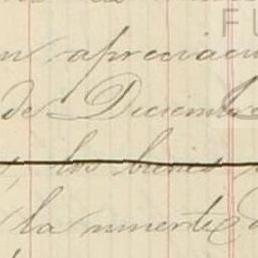 n apreciac
de Diciem
los bienes
la muerte d